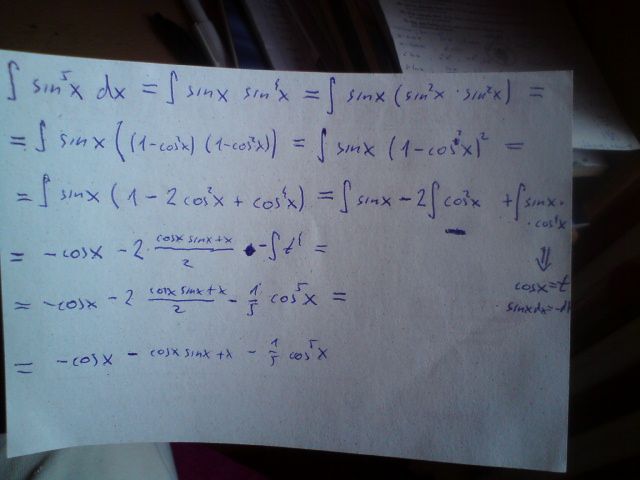 ∫ sin⁵x dx = ∫ sinx sin⁴x = ∫ sinx (sin²x · sin²x) =
= ∫ sinx ((1-cos²x) (1-cos²x)) = ∫ sinx (1-cos²x)² =
= ∫ sinx (1 - 2cos²x + cos⁴x) = ∫ sinx - 2∫ cos²x + ∫ sinx · cos⁴x
= -cosx - 2 · (cosx sinx+x)/2 - ∫ t⁴ =
⇓
cosx = t
= -cosx - 2 (cosx sinx+x)/2 - 1/5 cos⁵x =
sinxdx = -dt
= -cosx - cosx sinx + x - 1/5 cos⁵x